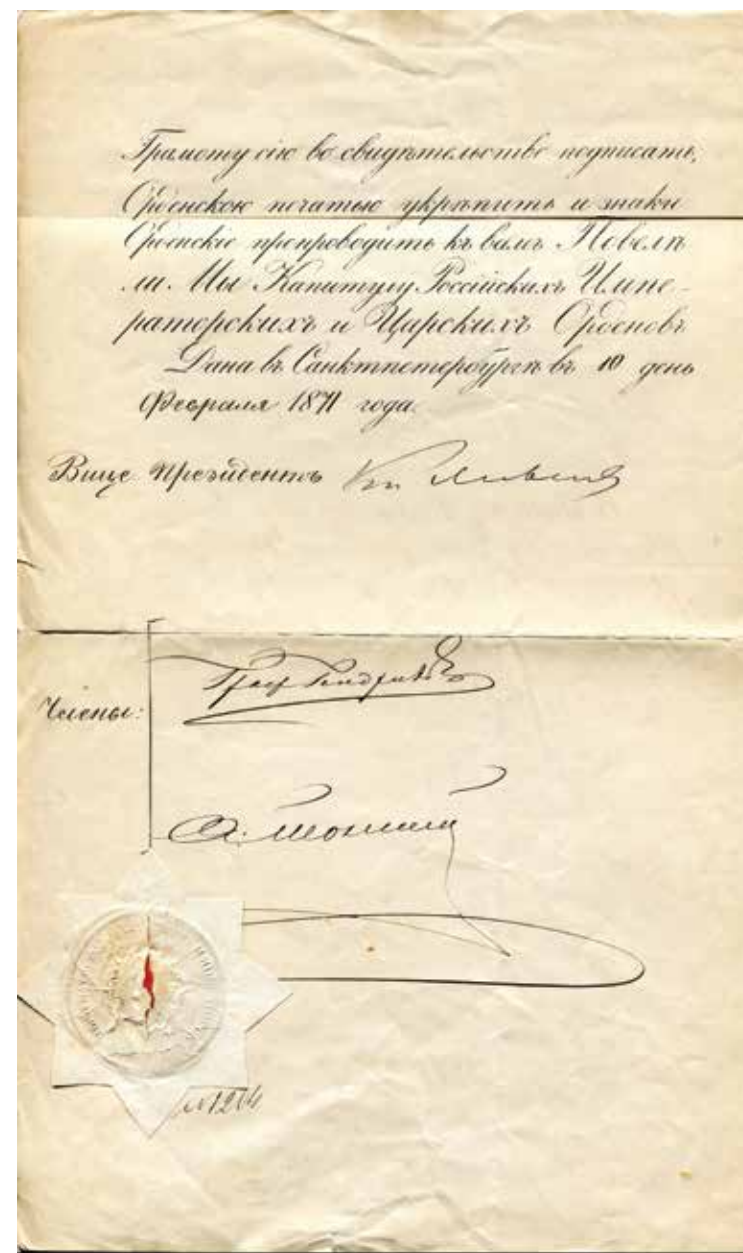 Грамоту сію во свидѣтельство подписать,
Орденскою печатью укрѣпить и знаки
Орденскіе препроводить къ вамъ Повелѣ-
ли Мы Капитулу Россійскихъ Импе-
раторскихъ и Царскихъ Орденовъ
Дана въ Санктпетербургѣ въ 10 день
Февраля 1871 года.
Вице Президентъ
Члены:
Граф Гендриков
№1214